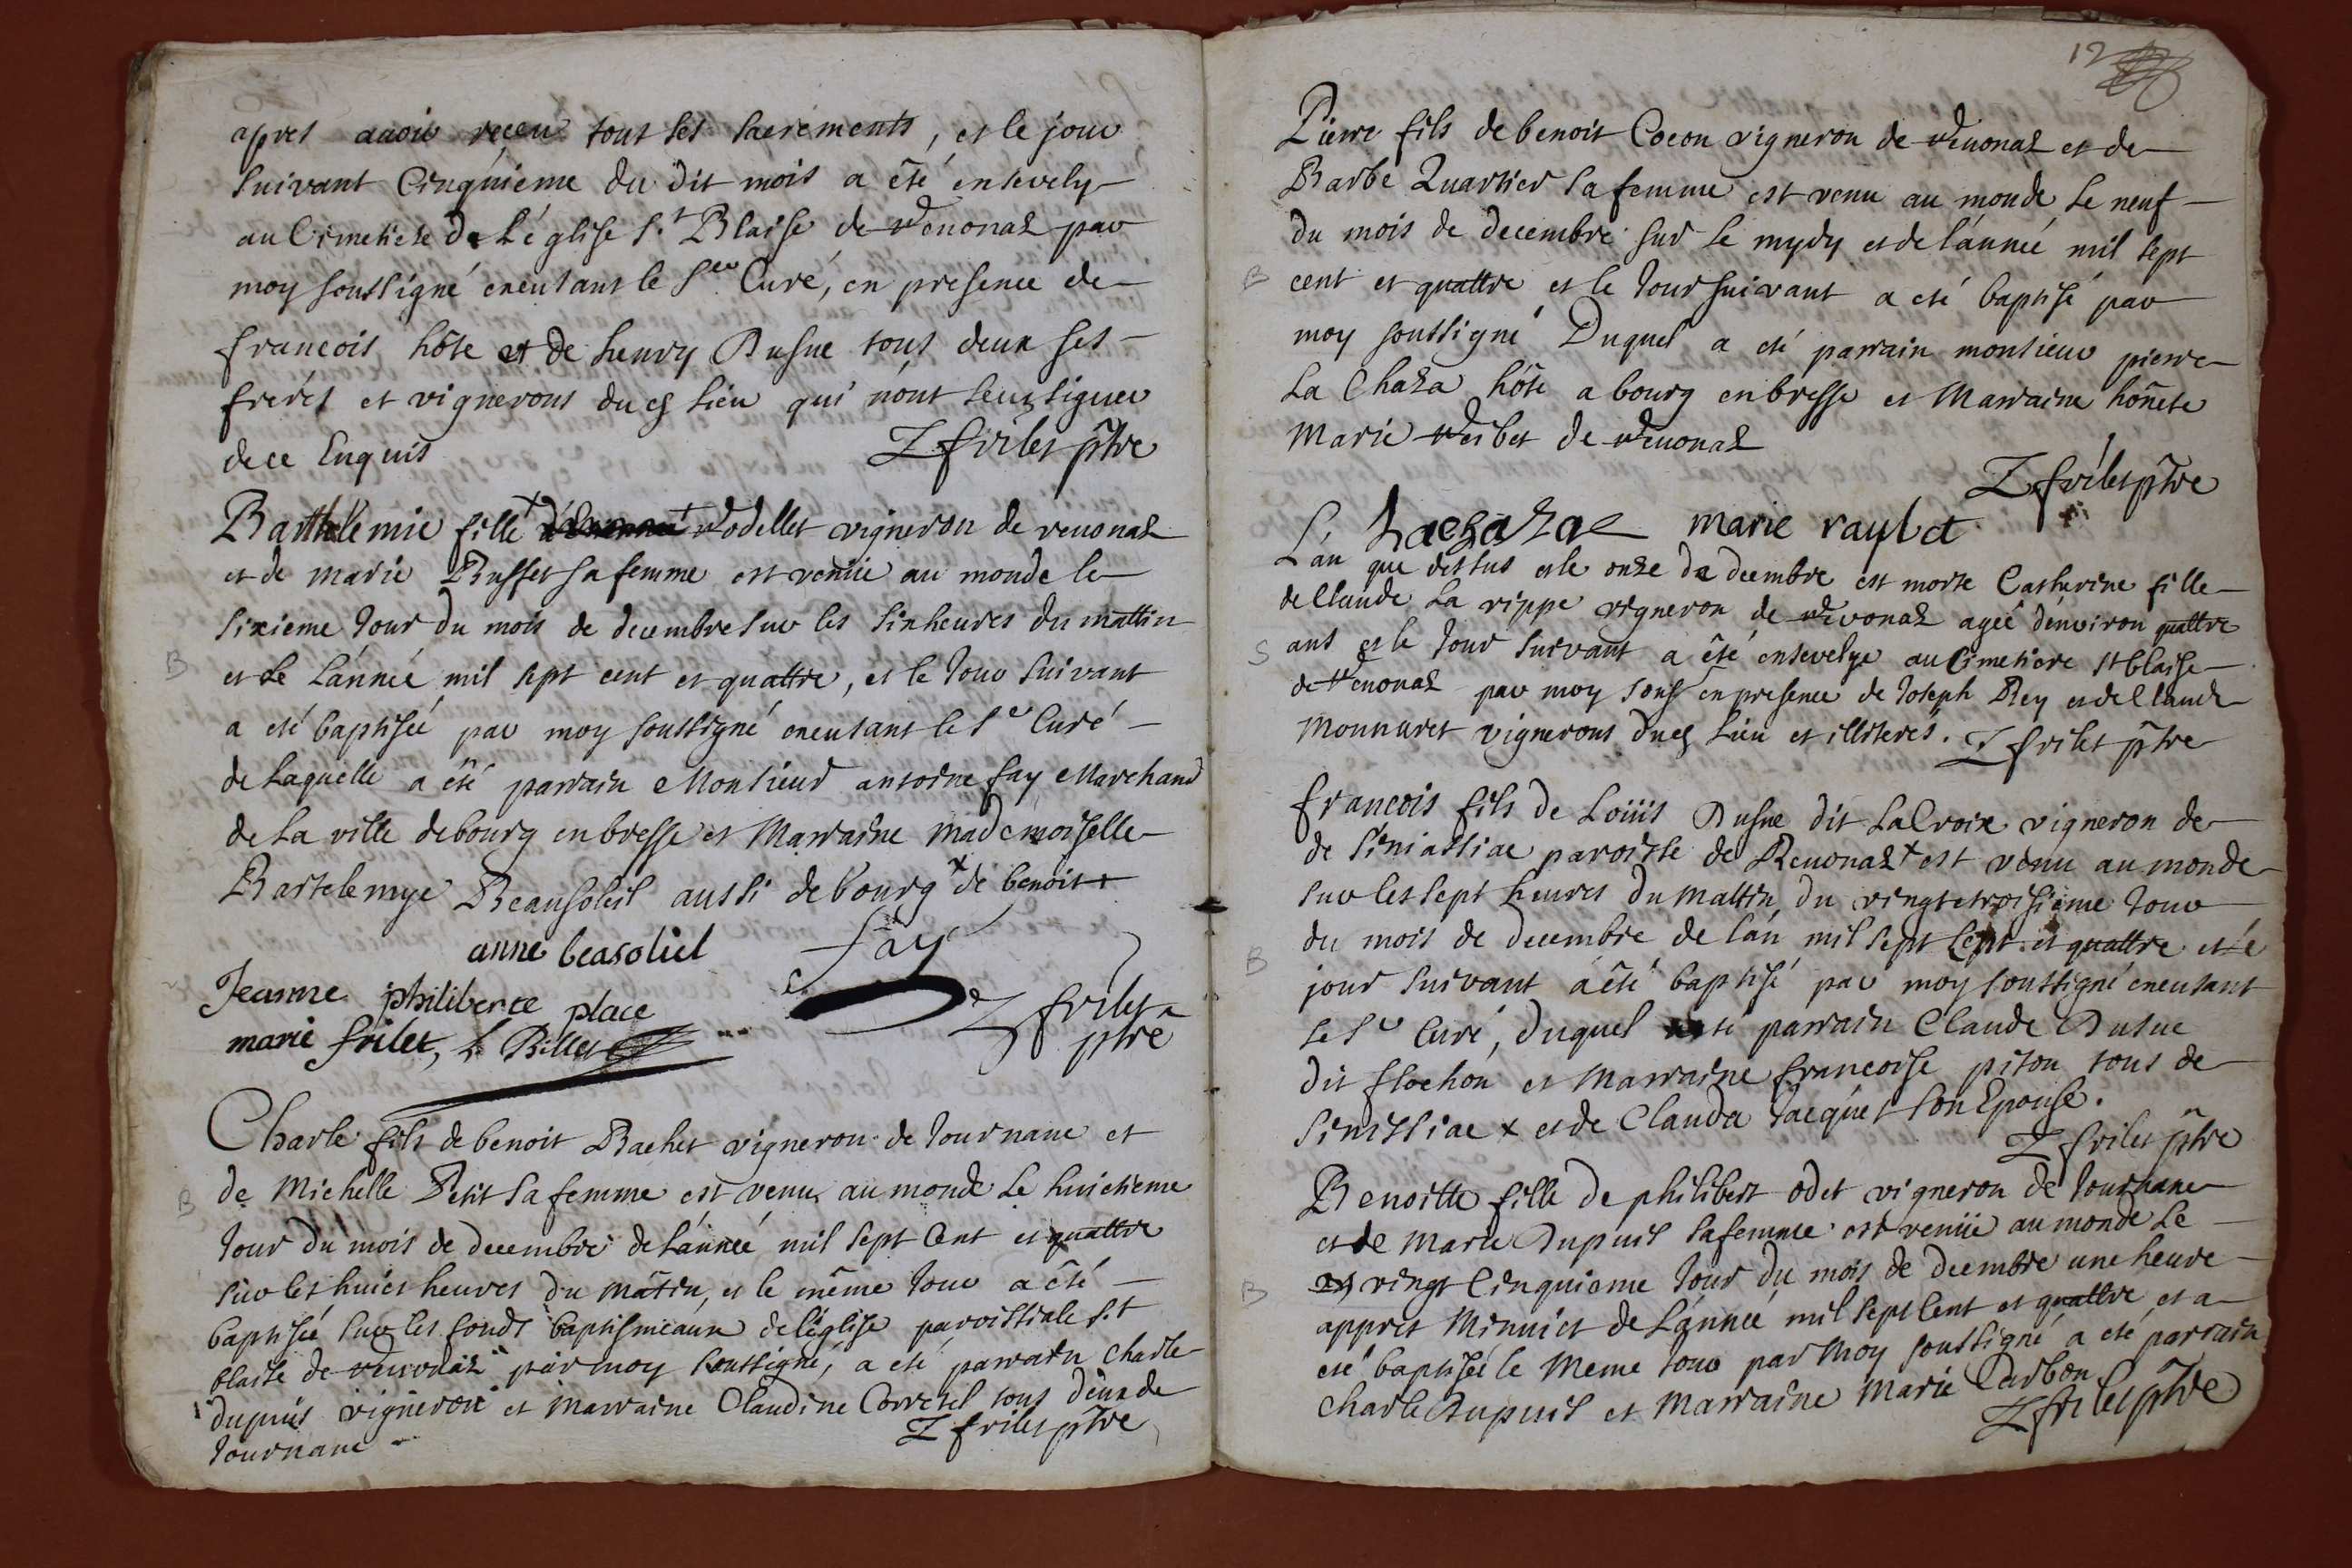 apres auoir receu tout les sacrements, et le jour
suivant Cinquieme du dit mois a été ensevely
au Cimetiere de L'église S.t Blaise de Reuonas par
moy soussigné éxcusant le Sr. Curé, en presence de
francois hôte et de henry Dusue tous deux ses
freres et vignerons dud lieu qui n'ont seus signer
de ce Enquis
Z frilet ptre
Barthélemie fille Rodellet vigneron de reuonas
et de Marie Busset sa femme est venüe au monde le
Sixieme Jour du mois de decembre sur les six heures du mattin
B
et de L'année mil sept cent et quattre, et le Jour suivant
a eté baptisée par moy soussigné excusant le Sr Curé
de Laquelle a été parrain Monsieur antoine fay Marchand
de la ville de bourg en bresse et Marraine mademoiselle
Bartelemye Beausoleil aussi de bourg x de benoit +
anne beasoliel
fay
Jeanne philiberte place
marie frilet, Billet
Z frilet
ptre
Charle fils de benoit Bachet vigneron de Journanc et
B
de Michelle Petit sa femme est venu au monde le huictieme
Jour du mois de decembre de L'année mil sept Cent et quattre
sur les huict heures du mâtin, et le même Jour a été
baptisée sur les fonds baptismeaux de l'église paroissiale S.t
blaise de reuonas par moy soussigné, a eté parrain charle
dupuis vigneron et marraine Claudine Corretel tous deux de
Journanc
Z frilet ptre
12
Pierre fils de benoit Cocon vigneron de Reuonas et de
Barbe Quartier sa femme est venu au monde le neuf
du mois de decembre sur le mydy et de l'année mil sept
B
cent et quattre et le Jour suivant a eté baptisé par
moy soussigné Duquel a eté parrain monsieur pierre
La Chaza hôte a bourg en bresse et Marraine hônete
Marie Reibet de Reuonas
Z frilet ptre
Lachaza marie raybet
L'an que dessus et le onze de decembre est morte Catherine fille
de Claude La rippe vigneron de Revonas agée d'enuiron quattre
S
ans et le Jour suivant a été ensevelye au Cimetiere St blaise
de Reuonas par moy souss en presence de Joseph Rey et de Claude
Monnuret vignerons dud Lieu et illiterés. Z frilet ptre
francois fils de Loüis Dusue dit LaCroix vigneron de
de Siniassiac paroisse de Reuonas x est venu au monde
sur les sept heures du mattin du vingtetroisieme Jour
B
du mois de decembre de l'an mil sept Cent et quattre et le
jour suivant a été baptisé par moy soussigné excusant
le Sr Curé, duquel a été parrain Claude Dusue
dit flochon et Marraine francoise piton tous de
Sinissiac x et de Clauda Jacquet son Epouse.
Z frilet ptre
Benoitte fille de philibert odet vigneron de Journanc
et de Marie Dupuis sa femme est venüe au monde le
B
vingt Cinquieme Jour du mois de decembre une heure
appres Minuict de L'année mil sept Cent et quattre et a
eté baptisée le Meme Jour par Moy soussigné a eté parrain
Charle Dupuis et Marraine Marie Carbon
Z frilet ptre